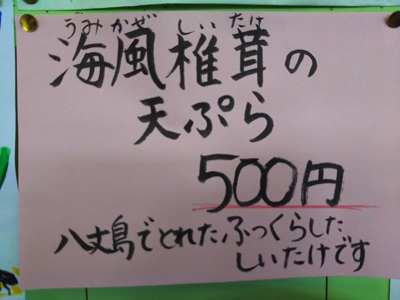 うみかぜ しいたけ
海風椎茸の
天ぷら
500円
八丈島でとれた、ふっくらした
しいたけです